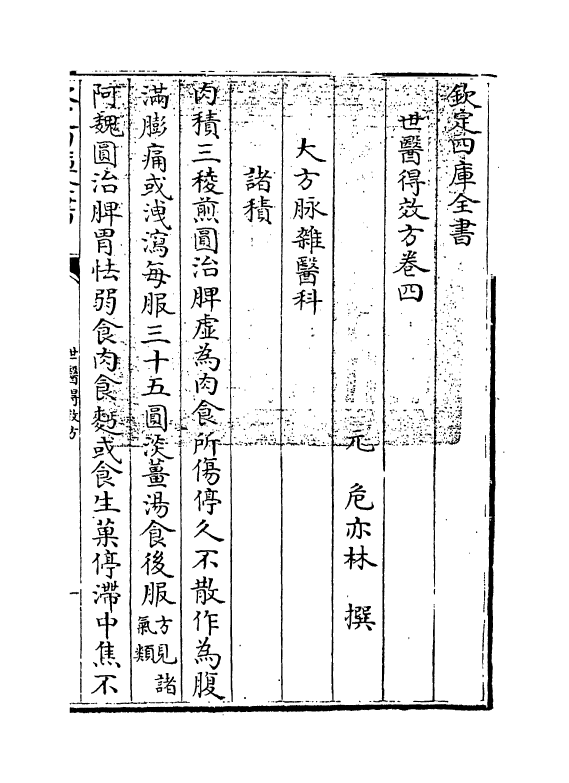 欽定四庫全書
世醫得效方卷四
元 危亦林 撰
大方脉雜醫科
諸積
肉積三稜煎圓治脾虛為肉食所傷停久不散作為腹
滿膨痛或洩瀉每服三十五圓淡薑湯食後服方見諸氣類
阿魏圓治脾胃怯弱食肉食麪或食生菓停滯中焦不
世醫得效方
一